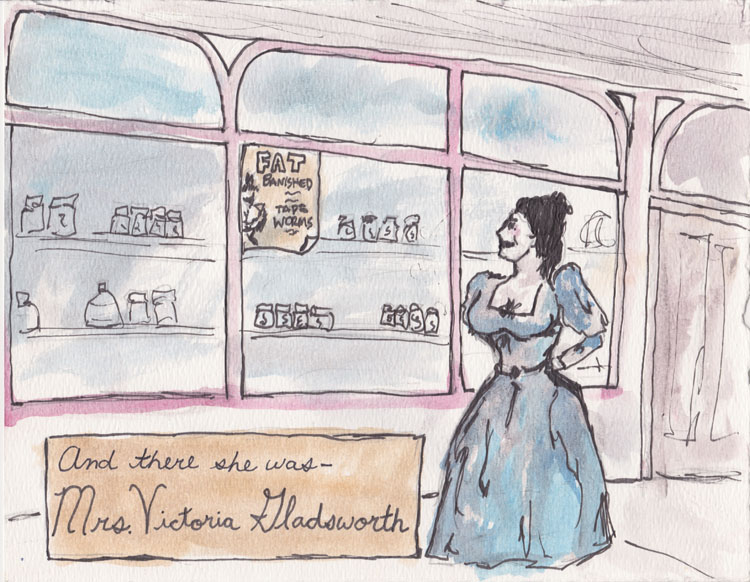 FAT
BANISHED
TAPE
WORMS
And there she was-
Mrs. Victoria Gladsworth